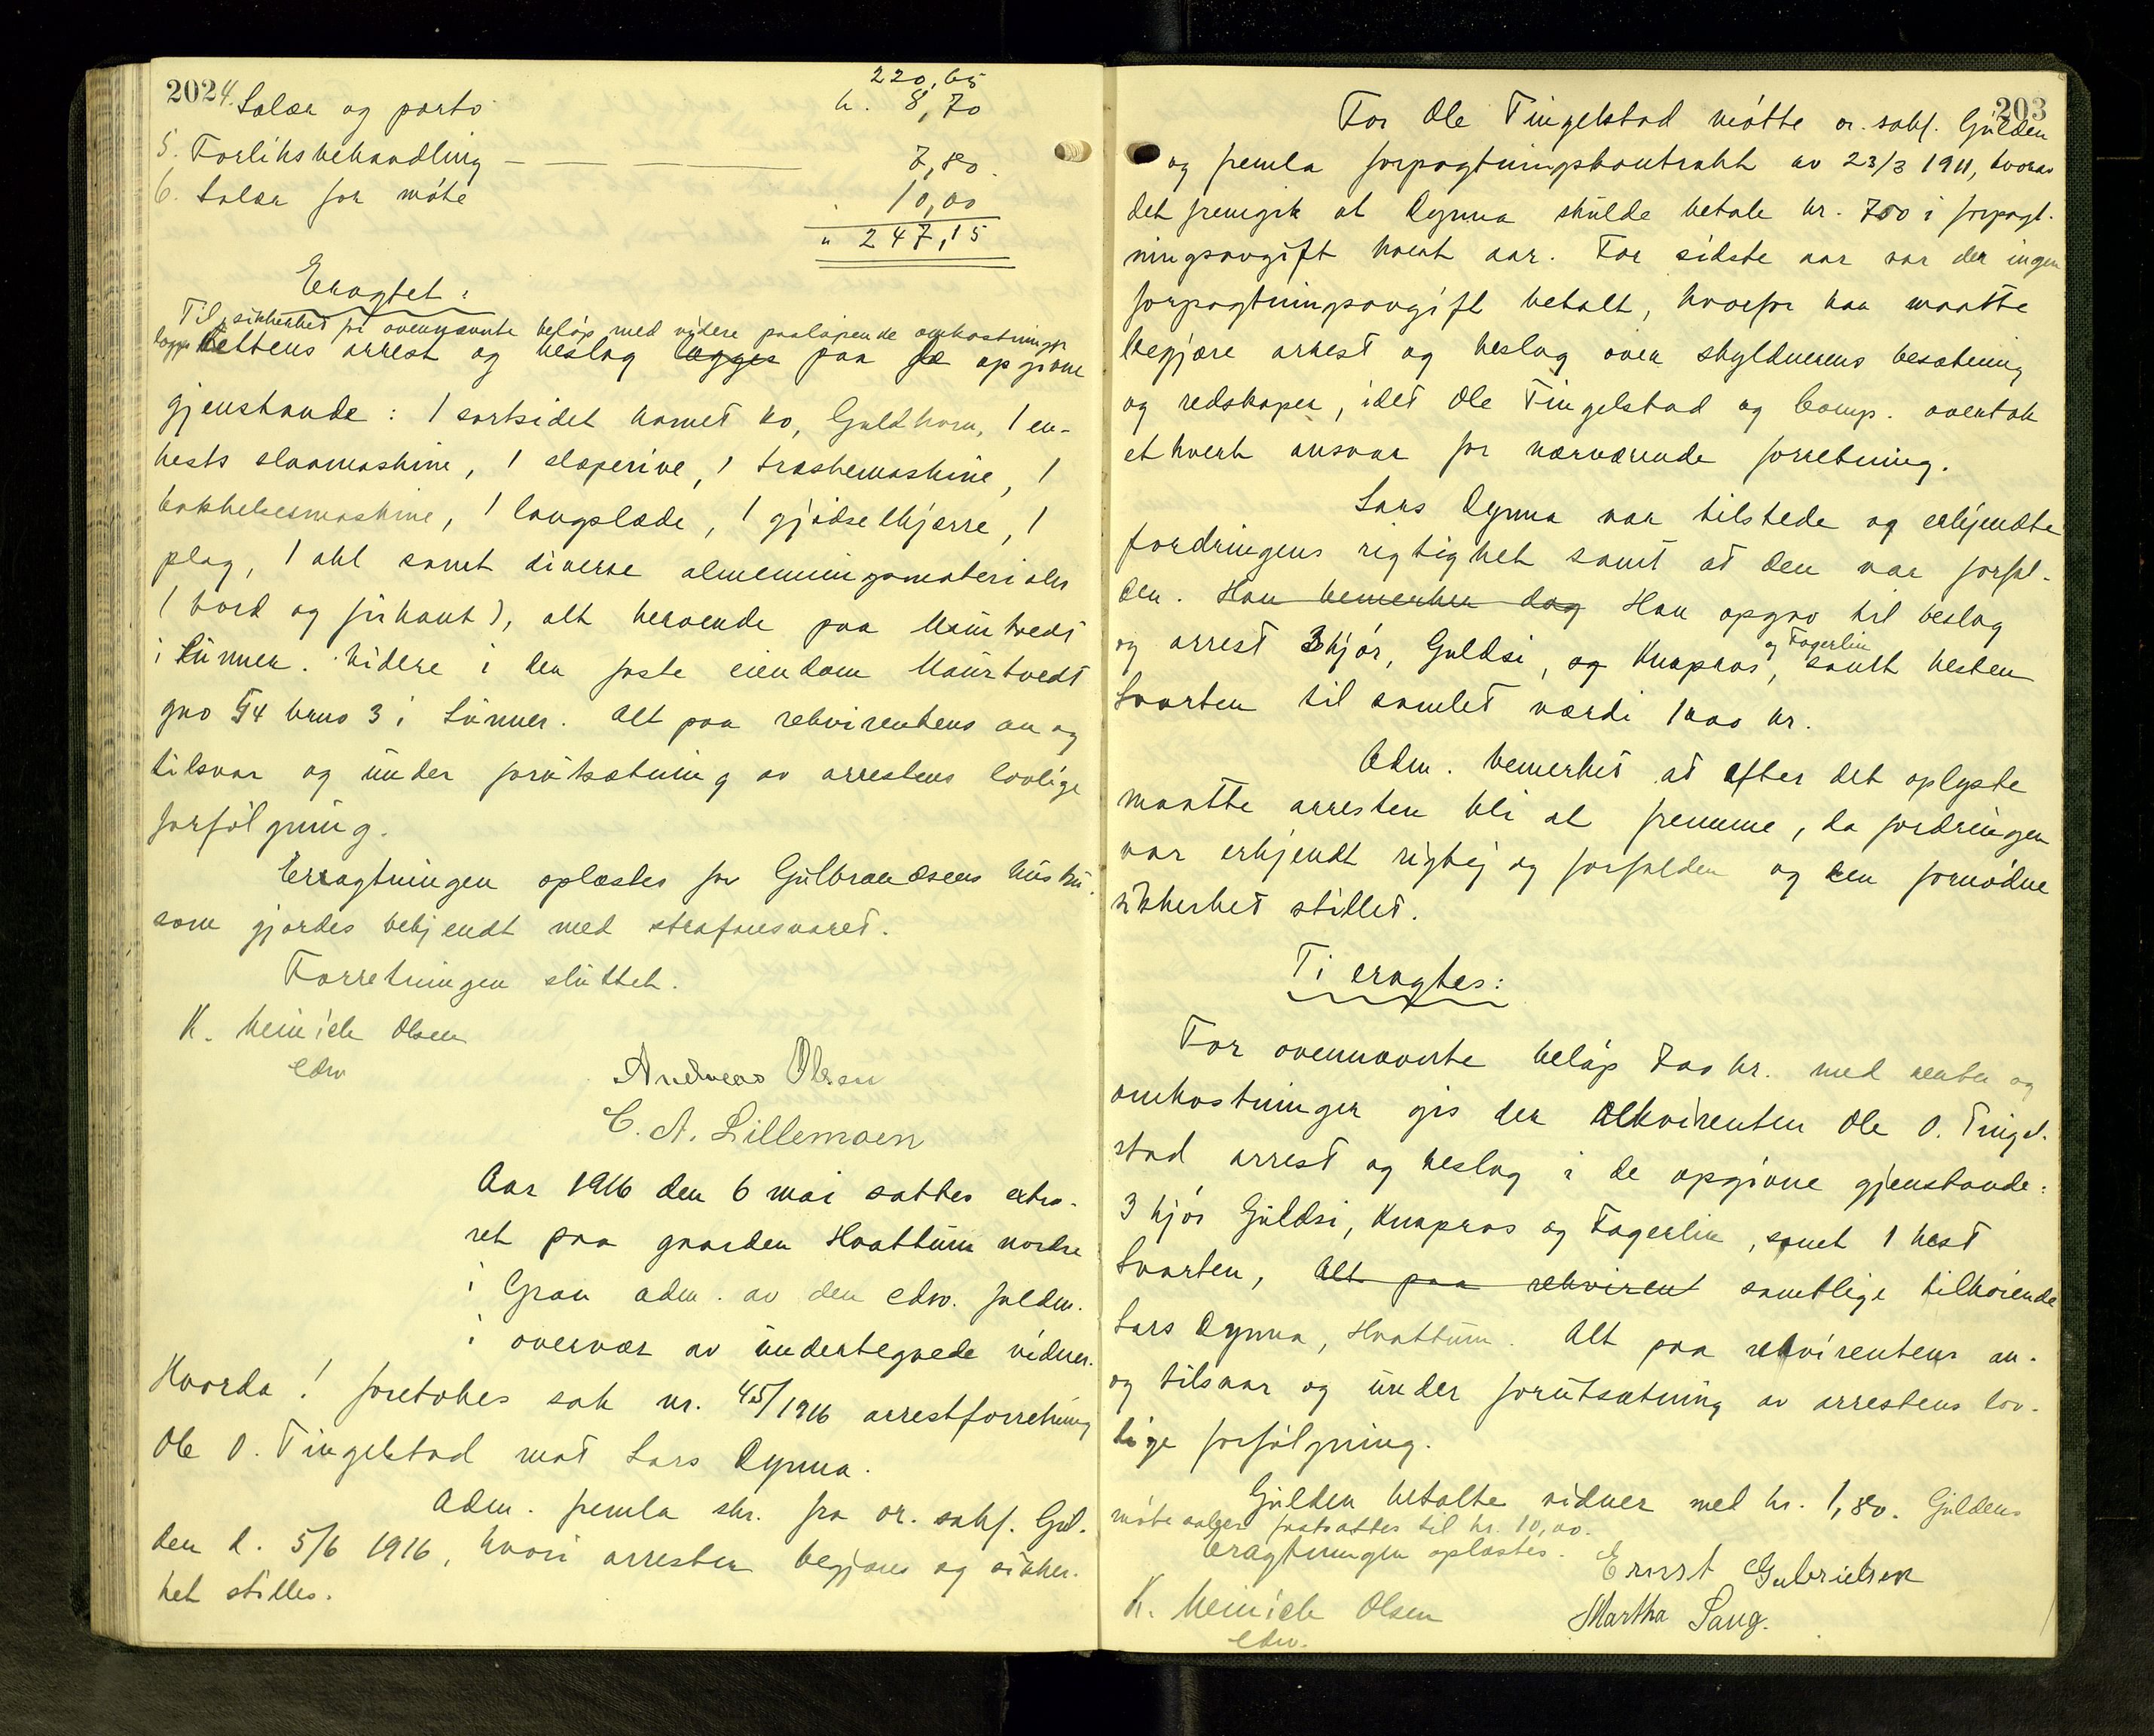 202
220,65
4. Salær og porto h. 8,70
5. Forliksbehandling — — — 7,80.
6. Salær for møte 10,00
" 247,15
Eragtet:
Til sikkerhet for ovennævnte beløp med videre paaløpende omkostninger
lægges Rettens arrest og beslag lægges paa de opgivne
gjenstande: 1 sortsidet hornet ko, Guldhorn, 1 en-
hests slaamaskine, 1 slæperive, 1 træskemaskine, 1
hakkelsesmaskine, 1 langslæde, 1 gjødselkjærre, 1
plog, 1 ahl samt diverse almenningsmaterialer
(bord og firkant), alt beroende paa Maurtvedt
i Lunner. Videre i den faste eiendom Maurtvedt
gno 54 brno 3 i Lunner. Alt paa rekvirentens an og
tilsvar og under forutsætning av arrestens lovlige
forfølgning.
Eragtningen oplæstes for Gulbrandsens hustru,
som gjordes bekjendt med strafansvaret.
Forretningen sluttet.
K. Meinich Olsen
edsv
Andreas Olsen
C. A. Lillemoen
Aar 1916 den 6 mai sattes extra-
ret paa gaarden Hvattum nordre
i Gran adm. av den edsv. fuldm.
i overvær av undertegnede vidner.
Hvorda! foretokes sak nr. 45/1916 arrestforretning
Ole O. Tingelstad mot Lars Dynna.
Adm. fremla skr. fra or. sakf. Gul-
den d. 5/6 1916, hvori arresten begjæres og sikker-
het stilles.
203
For Ole Tingelstad møtte or. sakf. Gulden
og fremla forpagtningskontrakt av 23/3 1911, hvorav
det fremgik at Dynna skulde betale kr. 700 i forpagt-
ningsavgift hvert aar. For sidste aar var der ingen
forpagtningsavgift betalt, hvorfor han maatte
begjære arrest og beslag over skyldnerens besætning
og redskaper, idet Ole Tingelstad og Comp. overtok
ethvert ansvar for nærværende forretning.
Lars Dynna var tilstede og erkjendte
fordringens rigtighet samt at den var forfal-
den. Han bemerker dog Han opgav til beslag
og arrest 3 kjør, Guldsi, og Knapros og Fagerlin, samt hesten
Svarten til samlet værdi 1000 kr.
Adm. bemerket at efter det oplyste
maatte arresten bli at fremme, da fordringen
var erkjendt rigtig og forfalden og den fornødne
sikkerhet stillet.
Ti eragtes:
For ovennævnte beløp 700 kr. med renter og
omkostninger gis der Rekvirenten Ole O. Tingel-
stad arrest og beslag i de opgivne gjenstande:
3 kjør Guldsi, Knapros og Fagerlin, samt 1 hest
Svarten, Alt paa rekvirent samtlige tilhørende
Lars Dynna, Hvattum. Alt paa rekvirentens an-
og tilsvar og under forutsætning av arrestens lov-
lige forfølgning.
Gulden betalte vidner med kr. 1,80. Guldens
møtesalær fastsattes til kr. 10,00.
Eragtningen oplæstes.
Ernst Gubrielsen
K. Meinich Olsen
edsv.
Martha Sang.